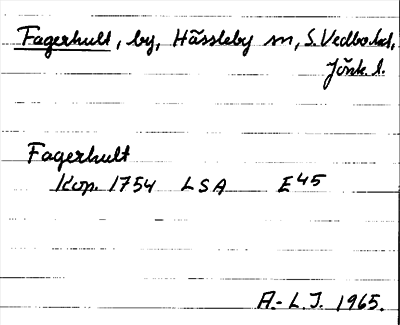 Fagerhult, by, Hässleby sn, S. Vedbo hd,
Jönk. l.
Fagerhult
Kop. 1754 LSA E45
A.-L.J. 1965.